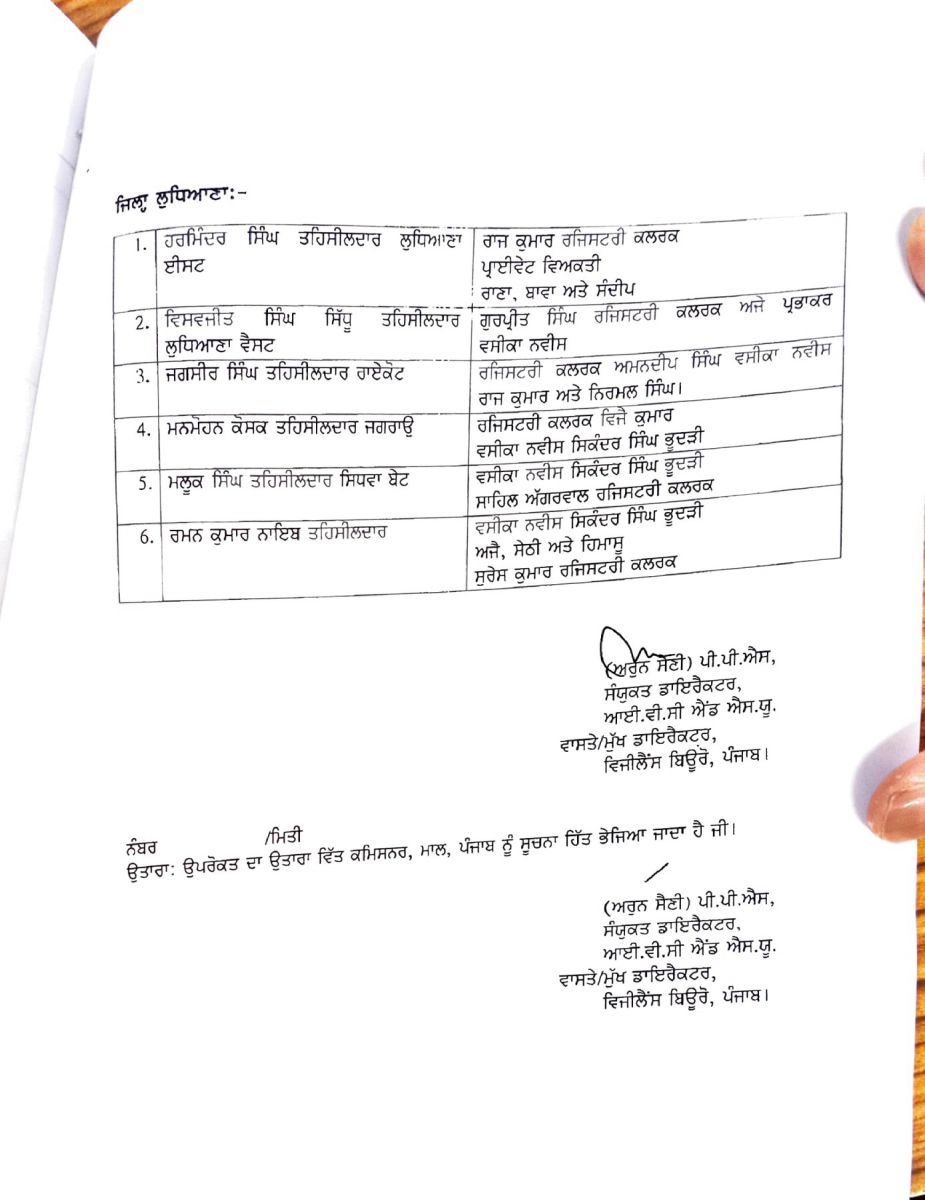 ਜਿਲ੍ਹਾ ਲੁਧਿਆਣਾ:-
1. ਹਰਮਿੰਦਰ ਸਿੰਘ ਤਹਿਸੀਲਦਾਰ ਲੁਧਿਆਣਾ
ਈਸਟ
ਰਾਜ ਕੁਮਾਰ ਰਜਿਸਟਰੀ ਕਲਰਕ
ਪ੍ਰਾਈਵੇਟ ਵਿਅਕਤੀ
ਰਾਣਾ, ਬਾਵਾ ਅਤੇ ਸੰਦੀਪ
2. ਵਿਸਵਜੀਤ ਸਿੰਘ ਸਿੱਧੂ ਤਹਿਸੀਲਦਾਰ
ਲੁਧਿਆਣਾ ਵੈਸਟ
ਗੁਰਪ੍ਰੀਤ ਸਿੰਘ ਰਜਿਸਟਰੀ ਕਲਰਕ ਅਜੇ ਪ੍ਰਭਾਕਰ
ਵਸੀਕਾ ਨਵੀਸ
3. ਜਗਸੀਰ ਸਿੰਘ ਤਹਿਸੀਲਦਾਰ ਰਾਏਕੋਟ
ਰਜਿਸਟਰੀ ਕਲਰਕ ਅਮਨਦੀਪ ਸਿੰਘ ਵਸੀਕਾ ਨਵੀਸ
ਰਾਜ ਕੁਮਾਰ ਅਤੇ ਨਿਰਮਲ ਸਿੰਘ।
4. ਮਨਮੋਹਨ ਕੋਸਕ ਤਹਿਸੀਲਦਾਰ ਜਗਰਾਉ
ਰਜਿਸਟਰੀ ਕਲਰਕ ਵਿਜੈ ਕੁਮਾਰ
ਵਸੀਕਾ ਨਵੀਸ ਸਿਕੰਦਰ ਸਿੰਘ ਭੂਦੜੀ
5. ਮਲੂਕ ਸਿੰਘ ਤਹਿਸੀਲਦਾਰ ਸਿਧਵਾ ਬੇਟ
ਵਸੀਕਾ ਨਵੀਸ ਸਿਕੰਦਰ ਸਿੰਘ ਭੂਦੜੀ
ਸਾਹਿਲ ਅੱਗਰਵਾਲ ਰਜਿਸਟਰੀ ਕਲਰਕ
6. ਰਮਨ ਕੁਮਾਰ ਨਾਇਬ ਤਹਿਸੀਲਦਾਰ
ਵਸੀਕਾ ਨਵੀਸ ਸਿਕੰਦਰ ਸਿੰਘ ਭੂਦੜੀ
ਅਜੈ, ਸੇਠੀ ਅਤੇ ਹਿਮਾਸੂ
ਸੁਰੇਸ ਕੁਮਾਰ ਰਜਿਸਟਰੀ ਕਲਰਕ
(ਅਰੁਨ ਸੈਣੀ) ਪੀ.ਪੀ.ਐਸ,
ਸੰਯੁਕਤ ਡਾਇਰੈਕਟਰ,
ਆਈ.ਵੀ.ਸੀ ਐਂਡ ਐਸ.ਯੂ.
ਵਾਸਤੇ/ਮੁੱਖ ਡਾਇਰੈਕਟਰ,
ਵਿਜੀਲੈਂਸ ਬਿਊਰੋ, ਪੰਜਾਬ।
ਨੰਬਰ /ਮਿਤੀ
ਉਤਾਰਾ: ਉਪਰੋਕਤ ਦਾ ਉਤਾਰਾ ਵਿੱਤ ਕਮਿਸਨਰ, ਮਾਲ, ਪੰਜਾਬ ਨੂੰ ਸੂਚਨਾ ਹਿੱਤ ਭੇਜਿਆ ਜਾਦਾ ਹੈ ਜੀ।
(ਅਰੁਨ ਸੈਣੀ) ਪੀ.ਪੀ.ਐਸ,
ਸੰਯੁਕਤ ਡਾਇਰੈਕਟਰ,
ਆਈ.ਵੀ.ਸੀ ਐਂਡ ਐਸ.ਯੂ.
ਵਾਸਤੇ/ਮੁੱਖ ਡਾਇਰੈਕਟਰ,
ਵਿਜੀਲੈਂਸ ਬਿਊਰੋ, ਪੰਜਾਬ।